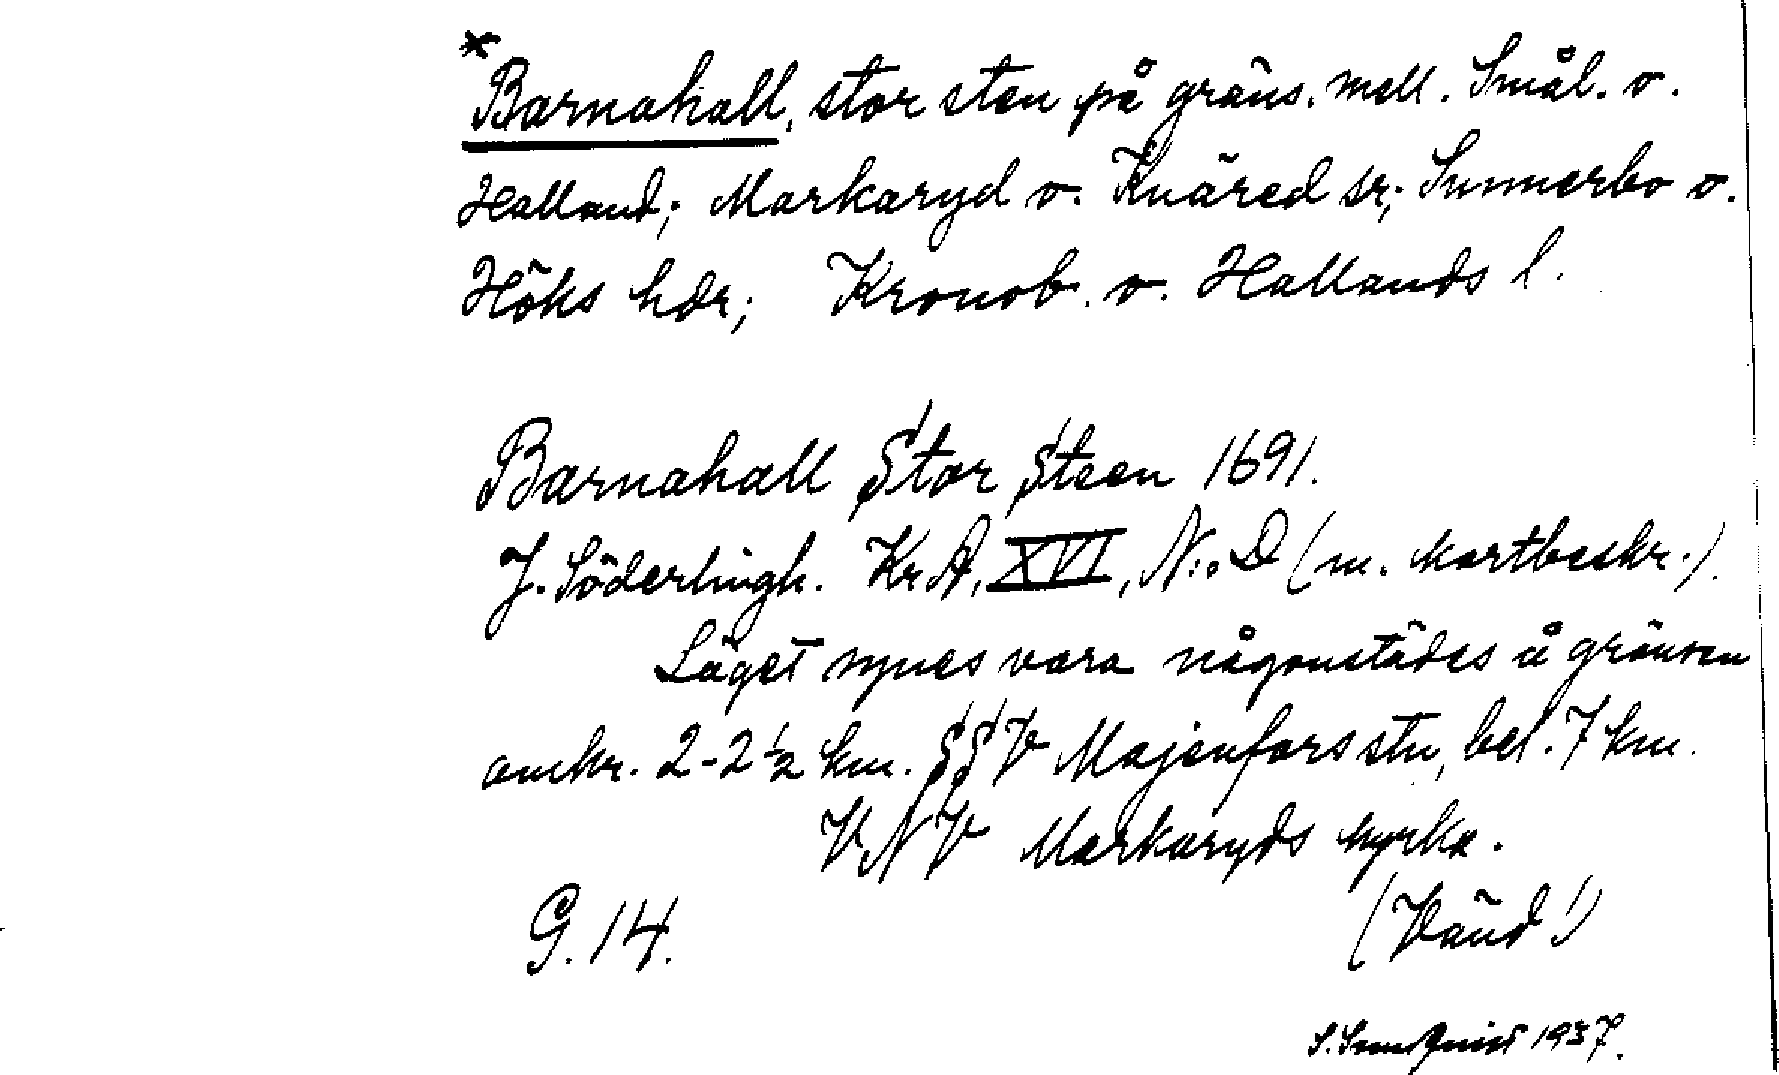 *Barnahall, stor sten på gräns. mell. Smål. o.
Halland; Markaryd o. Knäred sr; Sunnerbo o.
Höks hdr; Kronob. o. Hallands l.
Barnahall Stor Steen 1691.
J. Söderlingh. KrA, XVI, N:o D (m. kartbeskr.).
Läget synes vara någonstädes å gränsen
omkr. 2-2½ km. SSV Majenfors stn, bel. 7 km.
VNV Markaryds kyrka.
G. 14.
(Vänd!)
S. Sundquist 1937.